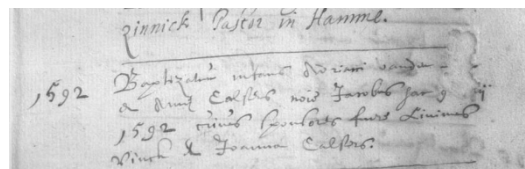 zinnick Pastor in Hamme.
1592 Baptizatus infans Adriani vande
& Calsers nois Jacobus hac 9
1592 cuius sponsores fuere Livinus
Vinck & Joanna Calsers.